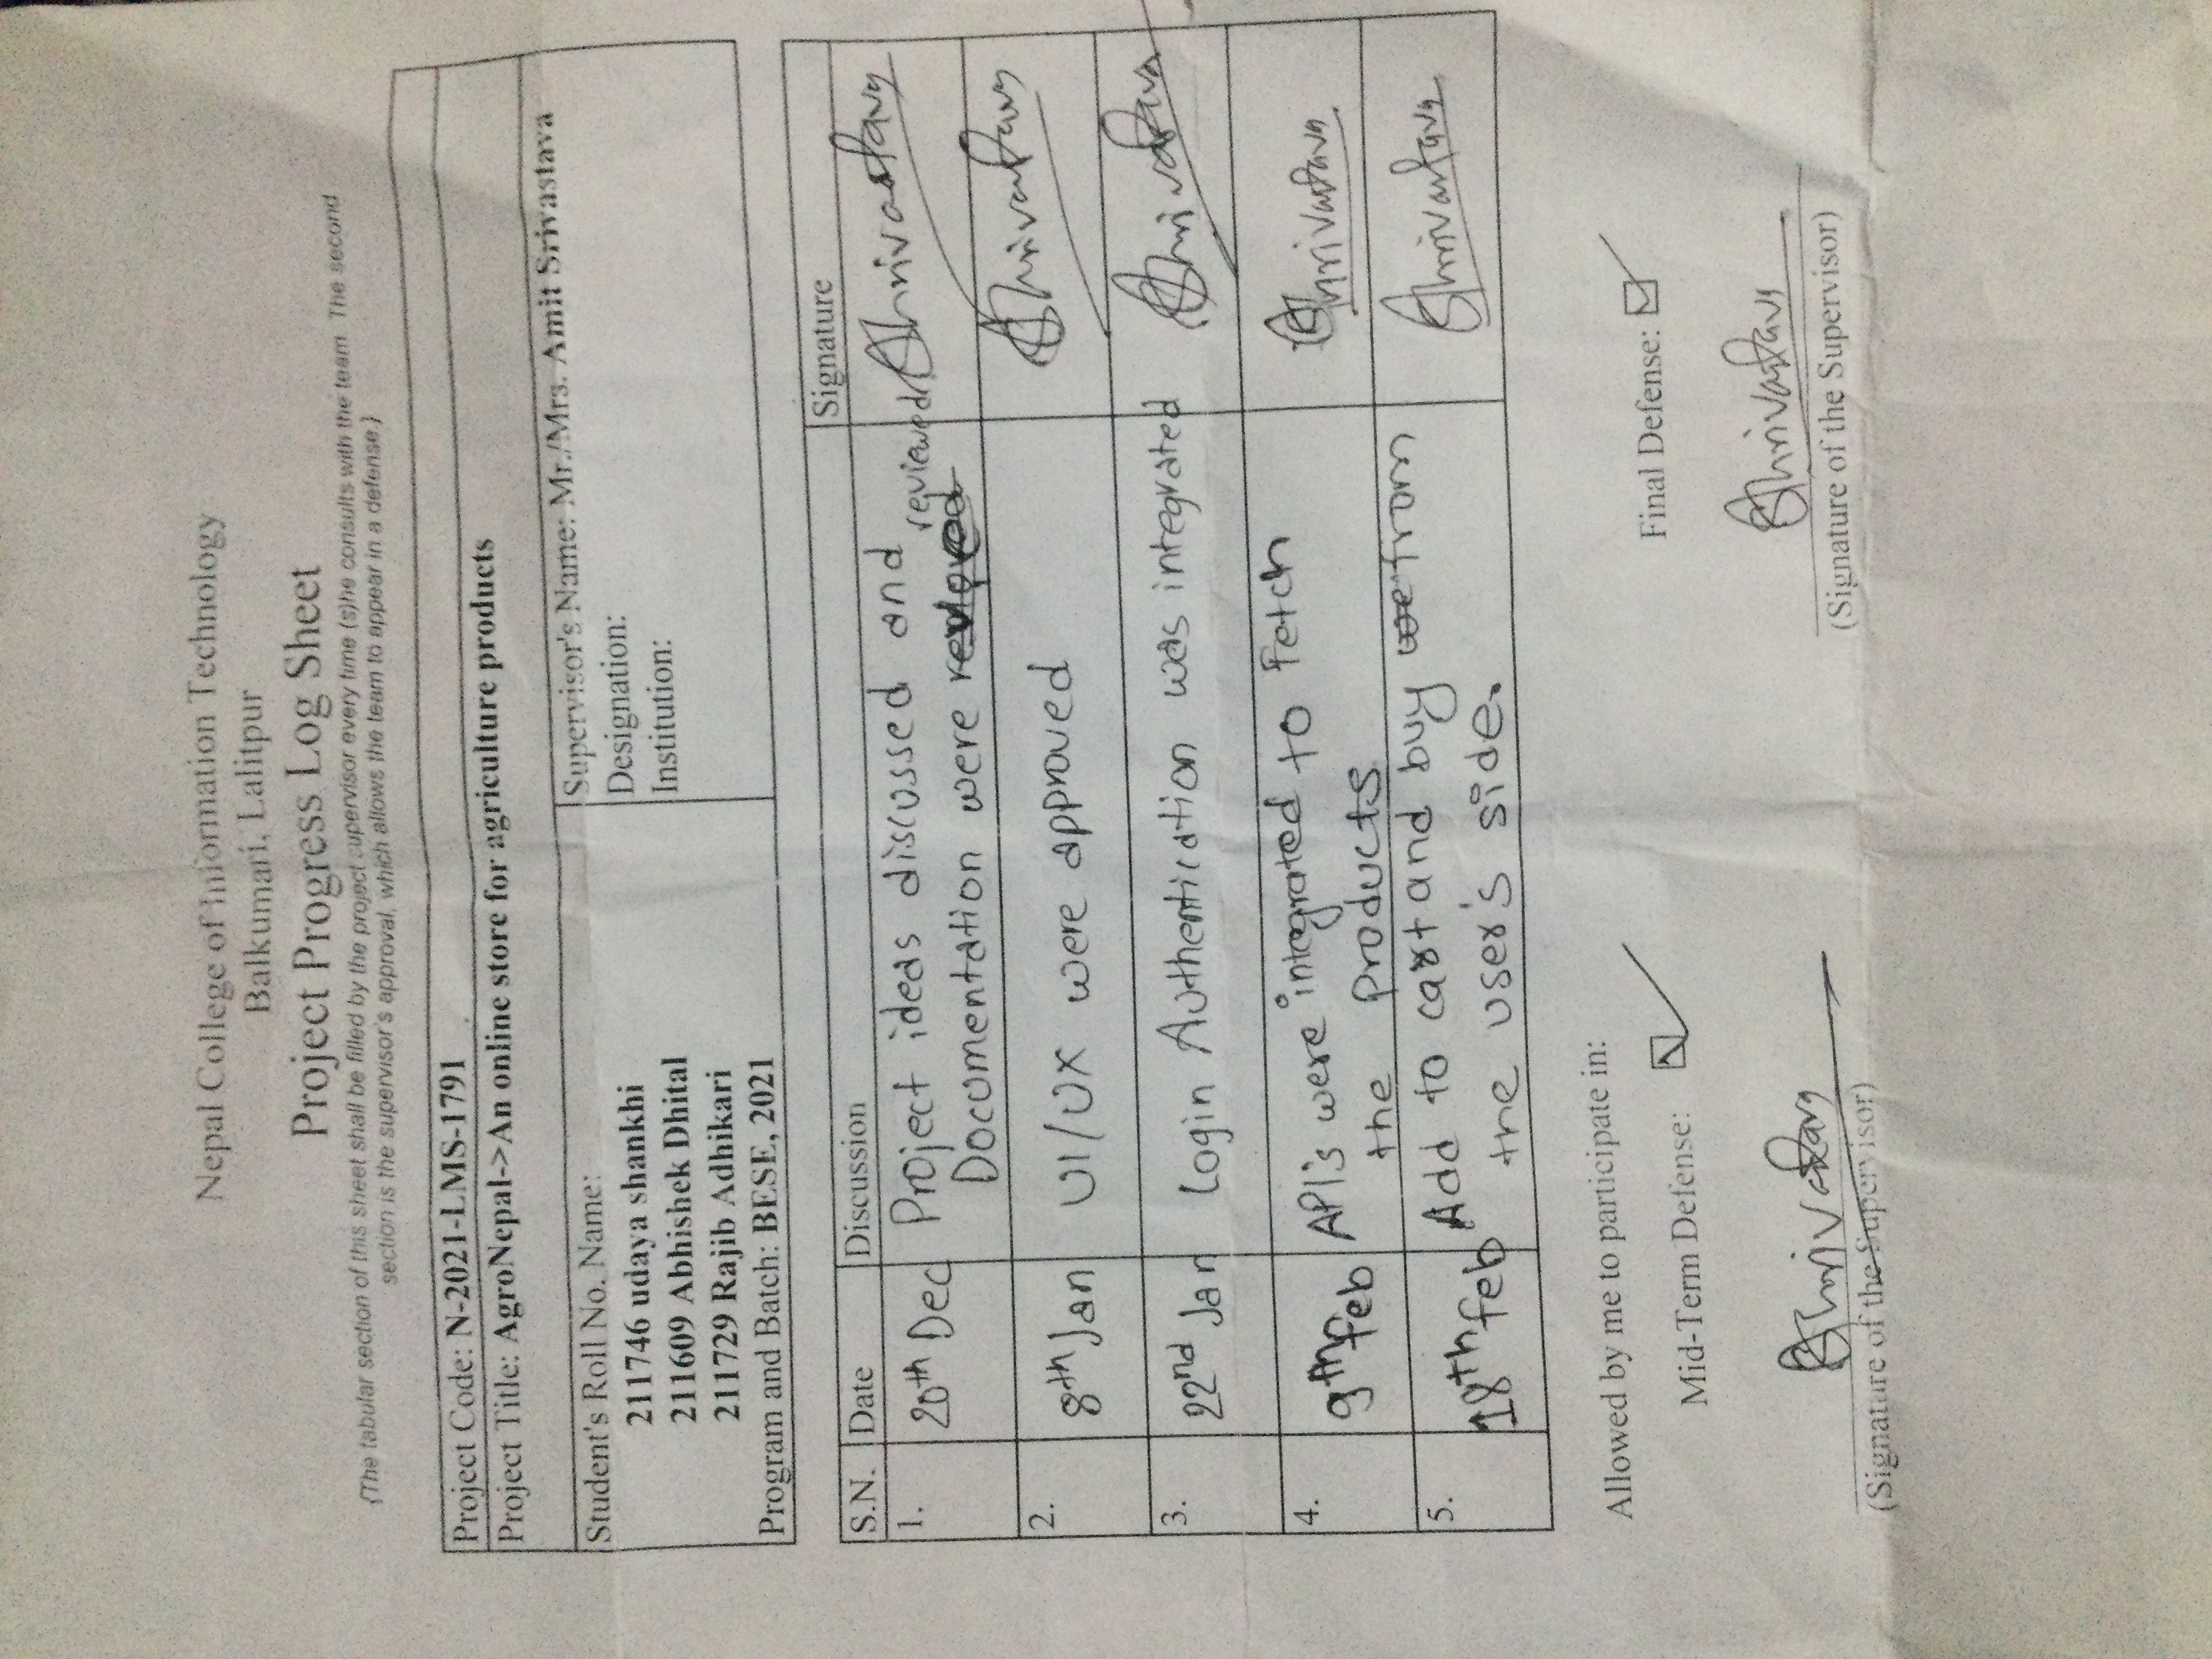 Nepal College of Information Technology
Balkumari, Lalitpur
Project Progress Log Sheet
{The tabular section of this sheet shall be filled by the project supervisor every time (s)he consults with the team. The second
section is the supervisor's approval, which allows the team to appear in a defense.}
Project Code: N-2021-LMS-1791
Project Title: AgroNepal->An online store for agriculture products
Student's Roll No. Name:
211746 udaya shankhi
211609 Abhishek Dhital
211729 Rajib Adhikari
Program and Batch: BESE, 2021
Supervisor's Name: Mr./Mrs. Amit Srivastava
Designation:
Institution:
S.N. Date Discussion Signature
1. 20th Dec Project ideas discussed and
Documentation were reviewed Shrivastava
2. 8th Jan UI/UX were approved Shrivastava
3. 22nd Jan Login Authentication was integrated Shrivastava
4. 9th Feb API's were integrated to fetch
the products Shrivastava
5. 18th feb Add to cart and buy from
the user's side. Shrivastava
Allowed by me to participate in:
Mid-Term Defense: Final Defense:
Shrivastava Shrivastava
(Signature of the Supervisor) (Signature of the Supervisor)